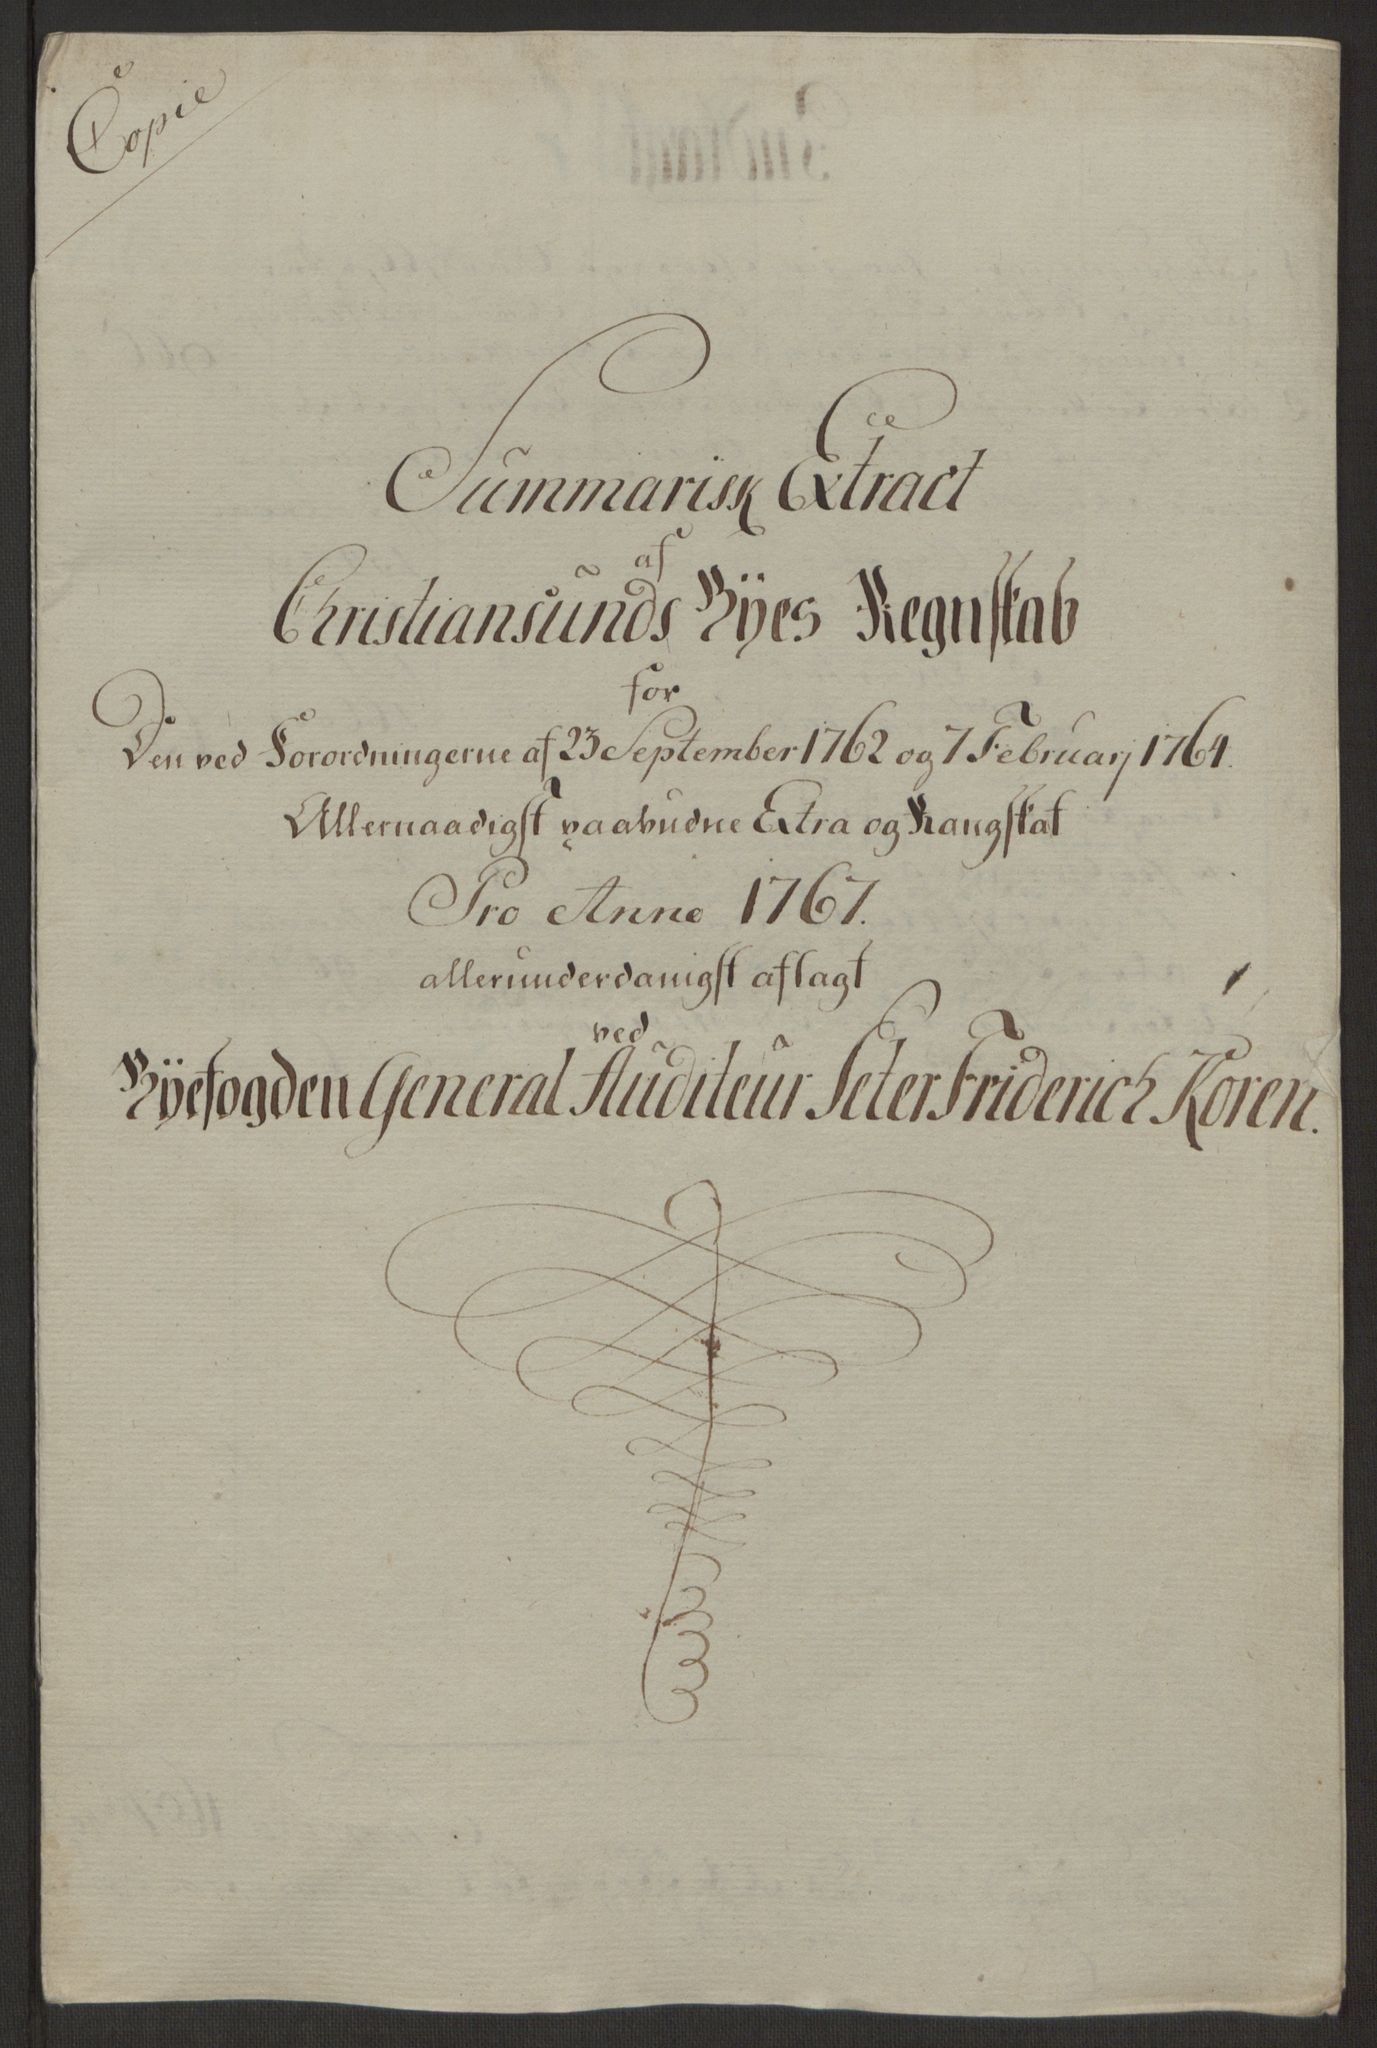 Copie
Summarisk Extract
af
Christiansunds Byes Regnskab
for
Den ved Forordningerne af 23 September 1762 og 7 Februarj 1764.
Allernaadigst paabudne Extra og Rangskat
Pro Anno 1767.
allerunderdanigst aflagt
ved
Byefogden General Auditeur Peter Friderich Koren.